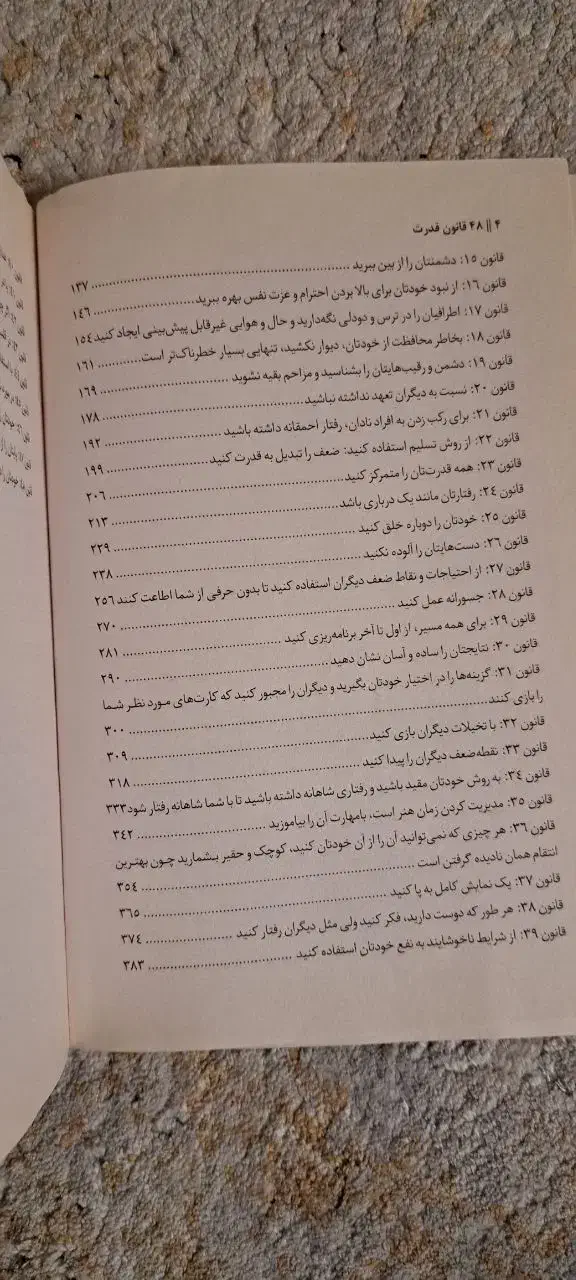 ۴ || ۴۸ قانون قدرت
قانون ۱۵: دشمنتان را از بین ببرید ........ ۱۳۷
قانون ۱۶: از نبود خودتان برای بالا بردن احترام و عزت نفس بهره ببرید ........ ۱۴۶
قانون ۱۷: اطرافیان را در ترس و دودلی نگه‌دارید و حال و هوایی غیرقابل پیش‌بینی ایجاد کنید ۱۵۴
قانون ۱۸: بخاطر محافظت از خودتان، دیوار نکشید، تنهایی بسیار خطرناک‌تر است ........ ۱۶۱
قانون ۱۹: دشمن و رقیب‌هایتان را بشناسید و مزاحم بقیه نشوید ........ ۱۶۹
قانون ۲۰: نسبت به دیگران تعهد نداشته نباشید ........ ۱۷۸
قانون ۲۱: برای رکب زدن به افراد نادان، رفتار احمقانه داشته باشید ........ ۱۹۲
قانون ۲۲: از روش تسلیم استفاده کنید: ضعف را تبدیل به قدرت کنید ........ ۱۹۹
قانون ۲۳: همه قدرت‌تان را متمرکز کنید ........ ۲۰۶
قانون ۲۴: رفتارتان مانند یک درباری باشد ........ ۲۱۳
قانون ۲۵: خودتان را دوباره خلق کنید ........ ۲۲۹
قانون ۲۶: دست‌هایتان را آلوده نکنید ........ ۲۳۸
قانون ۲۷: از احتیاجات و نقاط ضعف دیگران استفاده کنید تا بدون حرفی از شما اطاعت کنند ۲۵۶
قانون ۲۸: جسورانه عمل کنید ........ ۲۷۰
قانون ۲۹: برای همه مسیر، از اول تا آخر برنامه‌ریزی کنید ........ ۲۸۱
قانون ۳۰: نتایجتان را ساده و آسان نشان دهید ........ ۲۹۰
قانون ۳۱: گزینه‌ها را در اختیار خودتان بگیرید و دیگران را مجبور کنید که کارت‌های مورد نظر شما
را بازی کنند ........ ۳۰۰
قانون ۳۲: با تخیلات دیگران بازی کنید ........ ۳۰۹
قانون ۳۳: نقطه‌ضعف دیگران را پیدا کنید ........ ۳۱۸
قانون ۳۴: به روش خودتان مقید باشید و رفتاری شاهانه داشته باشید تا با شما شاهانه رفتار شود ۳۳۳
قانون ۳۵: مدیریت کردن زمان هنر است، بامهارت آن را بیاموزید ........ ۳۴۲
قانون ۳۶: هر چیزی که نمی‌توانید آن را از آن خودتان کنید، کوچک و حقیر بشمارید چون بهترین
انتقام همان نادیده گرفتن است ........ ۳۵۴
قانون ۳۷: یک نمایش کامل به پا کنید ........ ۳۶۵
قانون ۳۸: هر طور که دوست دارید، فکر کنید ولی مثل دیگران رفتار کنید ........ ۳۷۴
قانون ۳۹: از شرایط ناخوشایند به نفع خودتان استفاده کنید ........ ۳۸۳